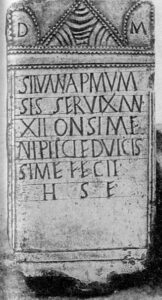 D M
SILVANA P MVM
SIS SERV IX AN
XII ONSIME
NI PISCIE DVLCIS
SIME FECIT
H S E